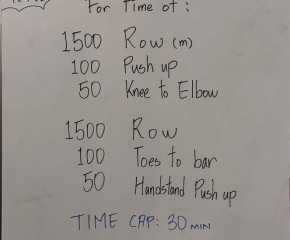 For Time of :
1500 Row (m)
100 Push up
50 Knee to Elbow
1500 Row
100 Toes to bar
50 Handstand Push up
TIME CAP: 30 MIN